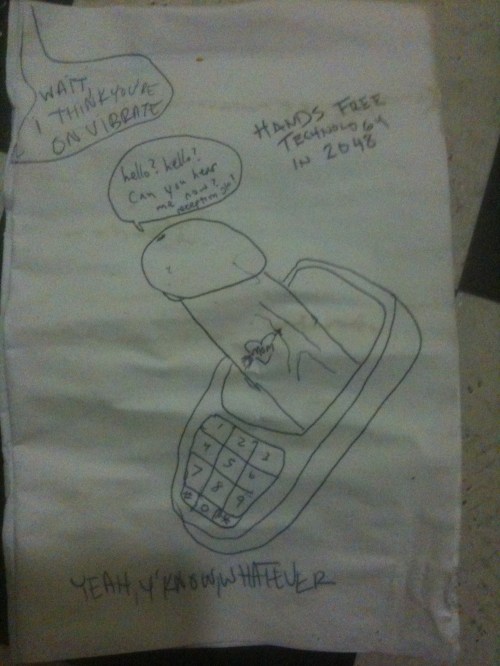 WAIT,
I THINK YOU'RE
ON VIBRATE
HANDS FREE
TECHNOLOGY
IN 2048
hello? hello?
Can you hear
me now?
reception
1 2 3
4 5 6
7 8 9
0
YEAH, Y'KNOW, WHATEVER